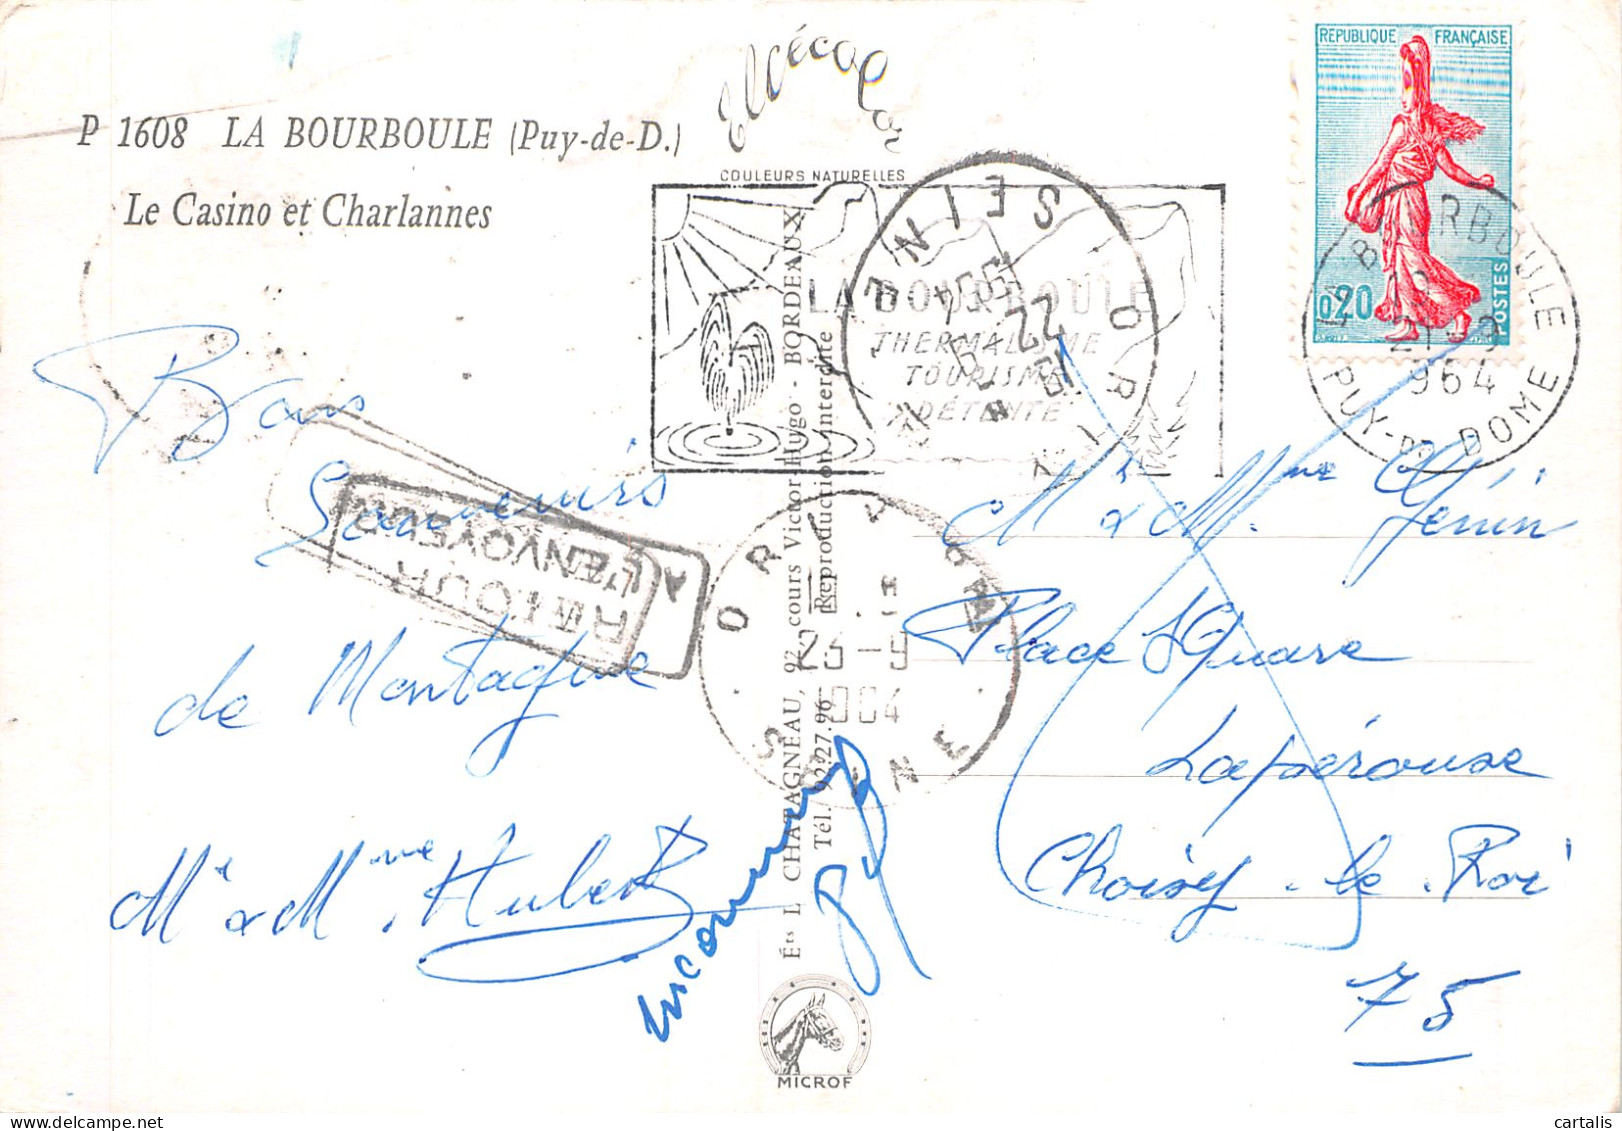 Elvécolor
COULEURS NATURELLES
P 1608 LA BOURBOULE (Puy-de-D.)
Le Casino et Charlannes
REPUBLIQUE FRANÇAISE
0,20
POSTES
LA BOURBOULE
21-9
1964
PUY-DE-DOME
LA BOURBOULE
THERMALISME
TOURISME
DÉTENTE
ORLY
22-9
1964
SEINE
RETOUR
A L'ENVOYEUR
ORLY
23-9
1964
SEINE
Bons
Souvenirs
de Montagne
Mr & Mme Hubert
inconnu
Éts L. CHATAGNEAU, 92, cours Victor Hugo - BORDEAUX
Tél. 92.27.96 Reproduction interdite
MICROF
Mr & Mme Génin
Place Square
Lapérouse
Choisy-le-Roi
75
cartalis